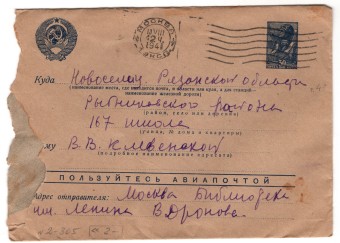 МОСКВА
12 4
1941
Куда Новосельц. Рязанской области
(наименование места, где находится почта, и области или края, а для станций—
наименование железной дороги)
Рыбниковского района
(район, село или деревня)
167 школа
(улица, № дома и квартиры)
В. В.
(подробное наименование адресата)
ПОЛЬЗУЙТЕСЬ АВИАПОЧТОЙ
Адрес отправителя: Москва Библиотека
им. Ленина В Дронова